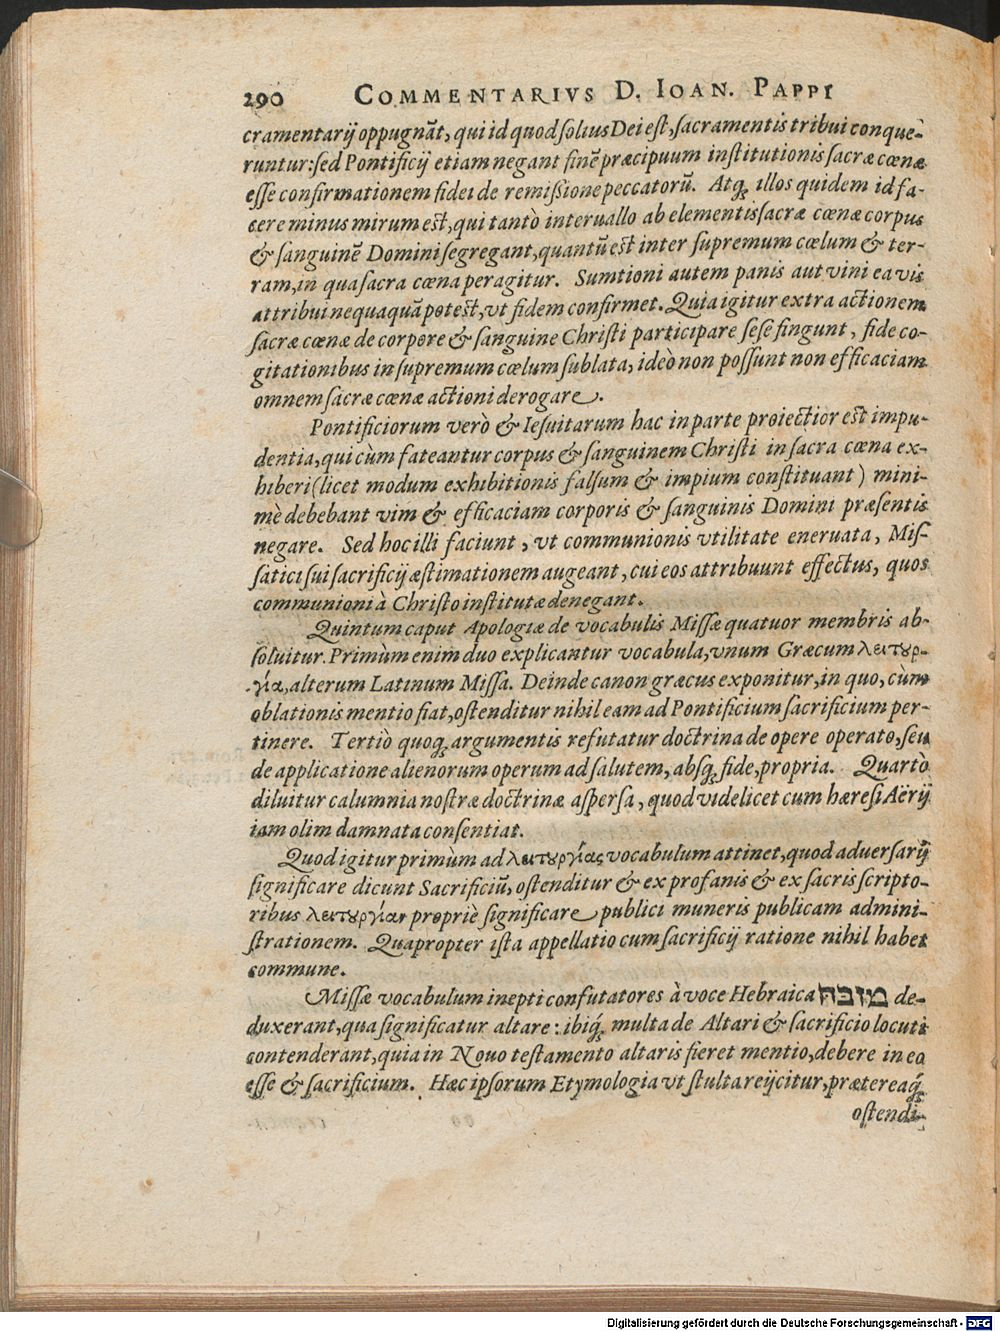 290 COMMENTARIVS D. IOAN. PAPPI
cramentarij oppugnāt, qui id quod solius Dei est, sacramentis tribui conque-
runtur: sed Pontificij etiam negant finē præcipuum institutionis sacræ cœnæ
esse confirmationem fidei de remißione peccatorū. Atq́; illos quidem id fa-
cere minus mirum est, qui tantò interuallo ab elementis sacræ cœnæ corpus
& sanguinē Domini segregant, quantū est inter supremum cœlum & ter-
ram, in qua sacra cœna peragitur. Sumtioni autem panis aut vini ea vis
attribui nequaquā potest, vt fidem confirmet. Quia igitur extra actionem
sacræ cœnæ de corpore & sanguine Christi participare sese fingunt, fide co-
gitationibus in supremum cœlum sublata, ideò non possunt non efficaciam
omnem sacræ cœnæ actioni derogare.
Pontificiorum verò & Iesuitarum hac in parte proiectior est impu-
dentia, qui cùm fateantur corpus & sanguinem Christi in sacra cœna ex-
hiberi (licet modum exhibitionis falsum & impium constituant) mini-
mè debebant vim & efficaciam corporis & sanguinis Domini præsentis
negare. Sed hoc illi faciunt, vt communionis vtilitate eneruata, Mis-
satici sui sacrificij æstimationem augeant, cui eos attribuunt effectus, quos
communioni à Christo institutæ denegant.
Quintum caput Apologiæ de vocabulis Missæ quatuor membris ab-
soluitur. Primùm enim duo explicantur vocabula, vnum Græcum λειτουρ-
γία, alterum Latinum Missa. Deinde canon græcus exponitur, in quo, cùm
oblationis mentio fiat, ostenditur nihil eam ad Pontificium sacrificium per-
tinere. Tertiò quoq; argumentis refutatur doctrina de opere operato, seu
de applicatione alienorum operum ad salutem, absq; fide, propria. Quartò
diluitur calumnia nostræ doctrinæ aspersa, quod videlicet cum hæresi Aërij
iam olim damnata consentiat.
Quod igitur primùm ad λειτουργίας vocabulum attinet, quod aduersarij
significare dicunt Sacrificiū, ostenditur & ex profanis & ex sacris scripto-
ribus λειτουργίαν propriè significare publici muneris publicam admini-
strationem. Quapropter ista appellatio cum sacrificij ratione nihil habet
commune.
Missæ vocabulum inepti confutatores à voce Hebraica מזבה de-
duxerant, qua significatur altare: ibiq́; multa de Altari & sacrificio locuti
contenderant, quia in Nouo testamento altaris fieret mentio, debere in eo
esse & sacrificium. Hæc ipsorum Etymologia vt stulta reijcitur, prætereaq́;
ostendi-
Digitalisierung gefördert durch die Deutsche Forschungsgemeinschaft - DFG